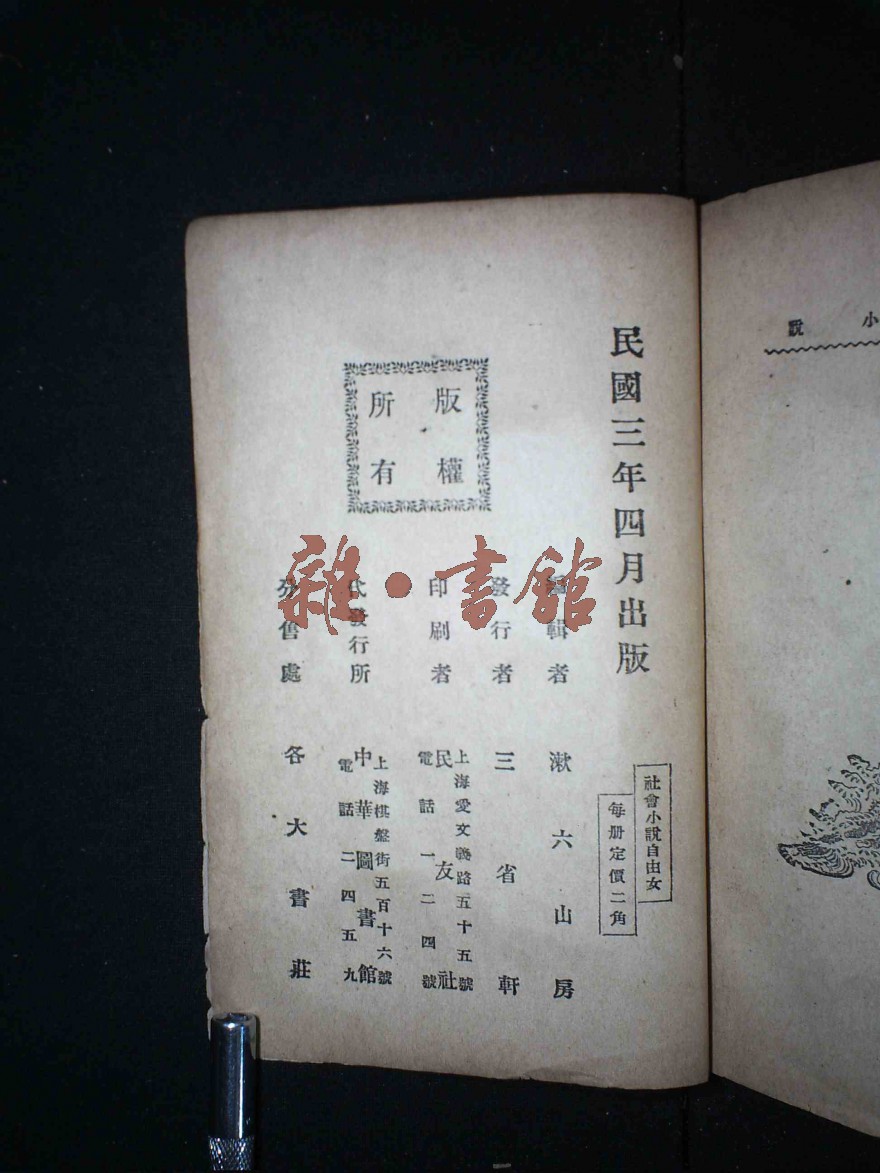 小說
民國三年四月出版
社會小說自由女
每册定價二角
編輯者 漱六山房
發行者 三省軒
印刷者 民友社
上海愛文義路五十五號
電話一二四號
代發行所 中華圖書館
上海棋盤街五百十六號
電話二四五九
分售處 各大書莊
版權所有
雜·書館